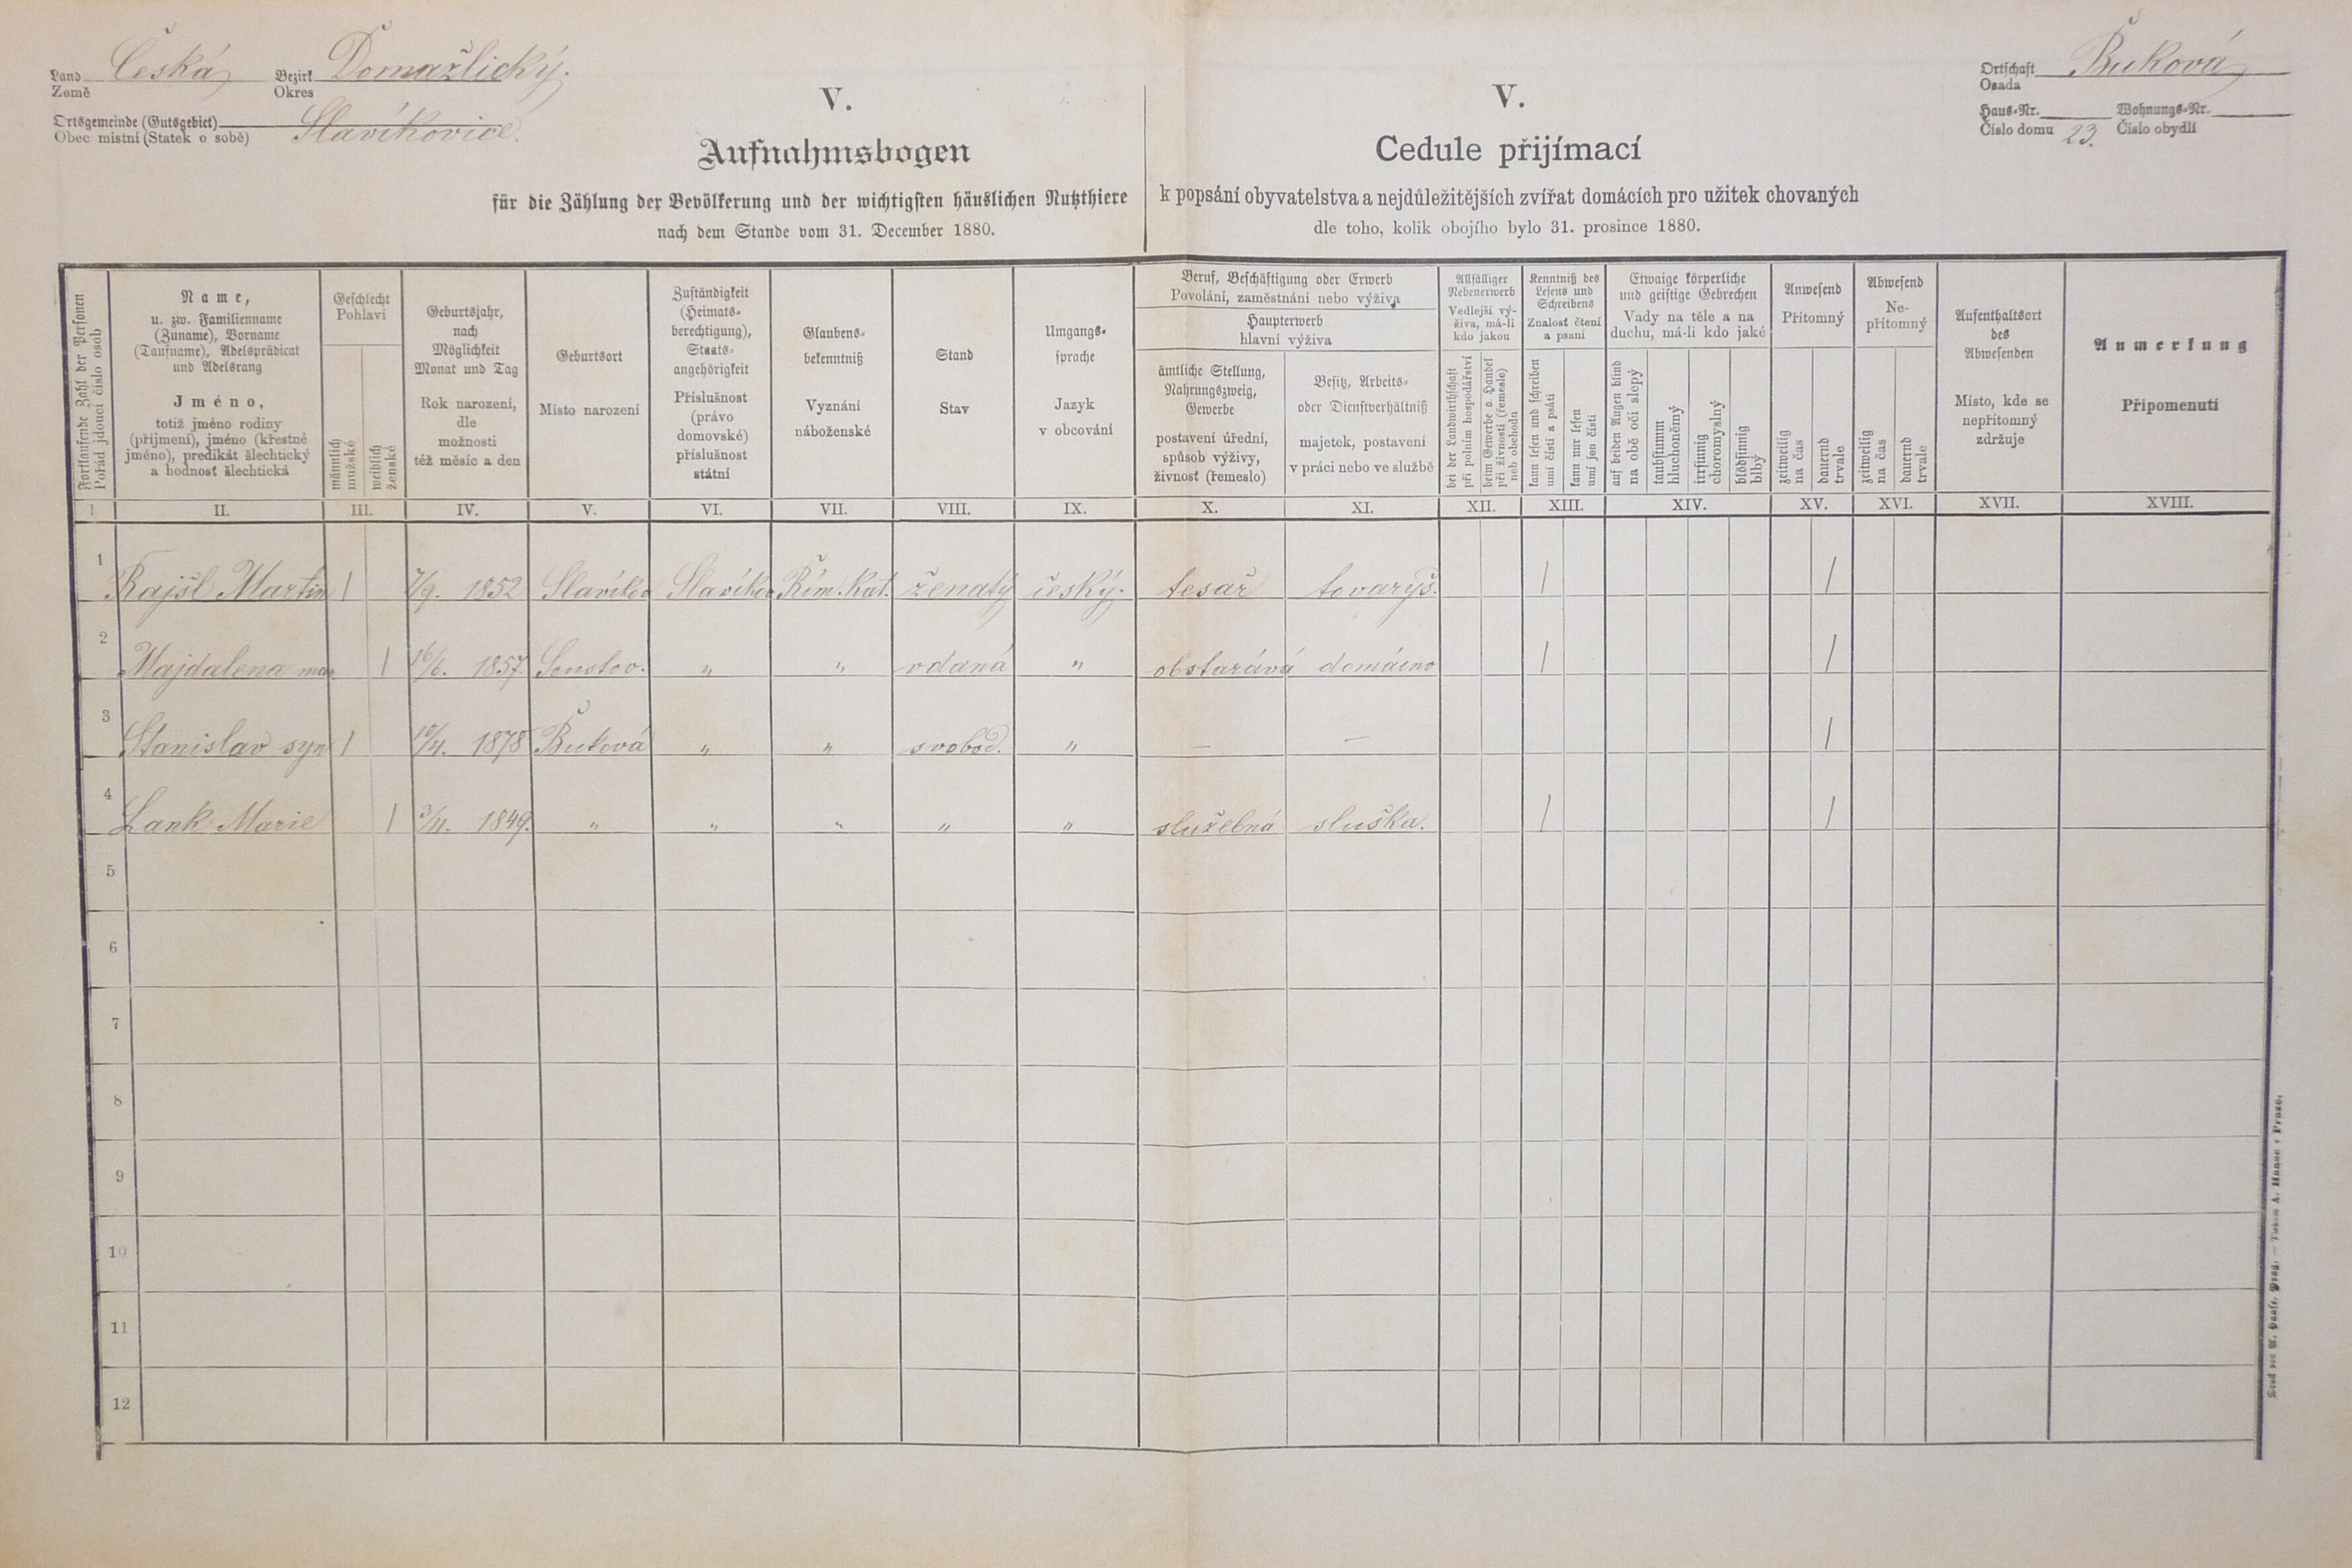 Land Česká Bezirk Domažlický.
Země Okres
Ortsgemeinde (Gutsgebiet) Slavíkovice.
Obec místní (Statek o sobě)
Ortschaft Buková
Osada
Haus-Nr. Wohnungs-Nr.
Číslo domu 23. Číslo obydlí
V.
Aufnahmsbogen
für die Zählung der Bevölkerung und der wichtigsten häuslichen Nutzthiere
nach dem Stande vom 31. December 1880.
V.
Cedule přijímací
k popsání obyvatelstva a nejdůležitějších zvířat domácích pro užitek chovaných
dle toho, kolik obojího bylo 31. prosince 1880.
Fortlaufende Zahl der Personen
Pořád jdoucí číslo osob
Name,
u. zw. Familienname
(Zuname), Vorname
(Taufname), Adelsprädicat
und Adelsrang
Jméno,
totiž jméno rodiny
(příjmení), jméno (křestné
jméno), predikát šlechtický
a hodnosť šlechtická
Geschlecht
Pohlaví
männlich
mužské
weiblich
ženské
Geburtsjahr,
nach
Möglichkeit
Monat und Tag
Rok narození,
dle
možnosti
též měsíc a den
Geburtsort
Místo narození
Zuständigkeit
(Heimats-
berechtigung),
Staats-
angehörigkeit
Příslušnost
(právo
domovské)
příslušnost
státní
Glaubens-
bekenntniß
Vyznání
náboženské
Stand
Stav
Umgangs-
sprache
Jazyk
v obcování
Beruf, Beschäftigung oder Erwerb
Povolání, zaměstnání nebo výživa
Haupterwerb
hlavní výživa
ämtliche Stellung,
Nahrungszweig,
Gewerbe
postavení úřední,
spůsob výživy,
živnosť (řemeslo)
Besitz, Arbeits-
oder Dienstverhältniß
majetek, postavení
v práci nebo ve službě
Allfälliger
Nebenerwerb
Vedlejší vý-
živa, má-li
kdo jakou
bei der Landwirthschaft
při polním hospodářství
beim Gewerbe o. Handel
při živnosti (řemesle)
neb obchodu
Kenntniß des
Lesens und
Schreibens
Znalosť čtení
a psaní
kann lesen und schreiben
umí čísti a psáti
kann nur lesen
umí jen čísti
Etwaige körperliche
und geistige Gebrechen
Vady na těle a na
duchu, má-li kdo jaké
auf beiden Augen blind
na obě oči slepý
taubstumm
hluchoněmý
irrsinnig
choromyslný
blödsinnig
blbý
Anwesend
Přítomný
zeitweilig
na čas
dauernd
trvale
Abwesend
Ne-
přítomný
zeitweilig
na čas
dauernd
trvale
Aufenthaltsort
des
Abwesenden
Místo, kde se
nepřítomný
zdržuje
Anmerkung
Připomenutí
I II. III. IV. V. VI. VII. VIII. IX. X. XI. XII. XIII. XIV. XV. XVI. XVII. XVIII.
1 Rajšl Martin / 7/9. 1852 Slavíkov Slavíkov Řím. Kat. ženatý český. tesař tovaryš. / /
2 Majdalena man. / 16/6. 1857. Soustov. " " vdaná " obstarává domácno / /
3 Stanislav syn / 10/4. 1878 Buková " " svobod. " — — /
4 Lank Marie / 3/4. 1849. " " " " " služebná služka. / /
5
6
7
8
9
10
11
12
Druck von A. Haase, Prag. — Tiskem A. Haase v Praze.